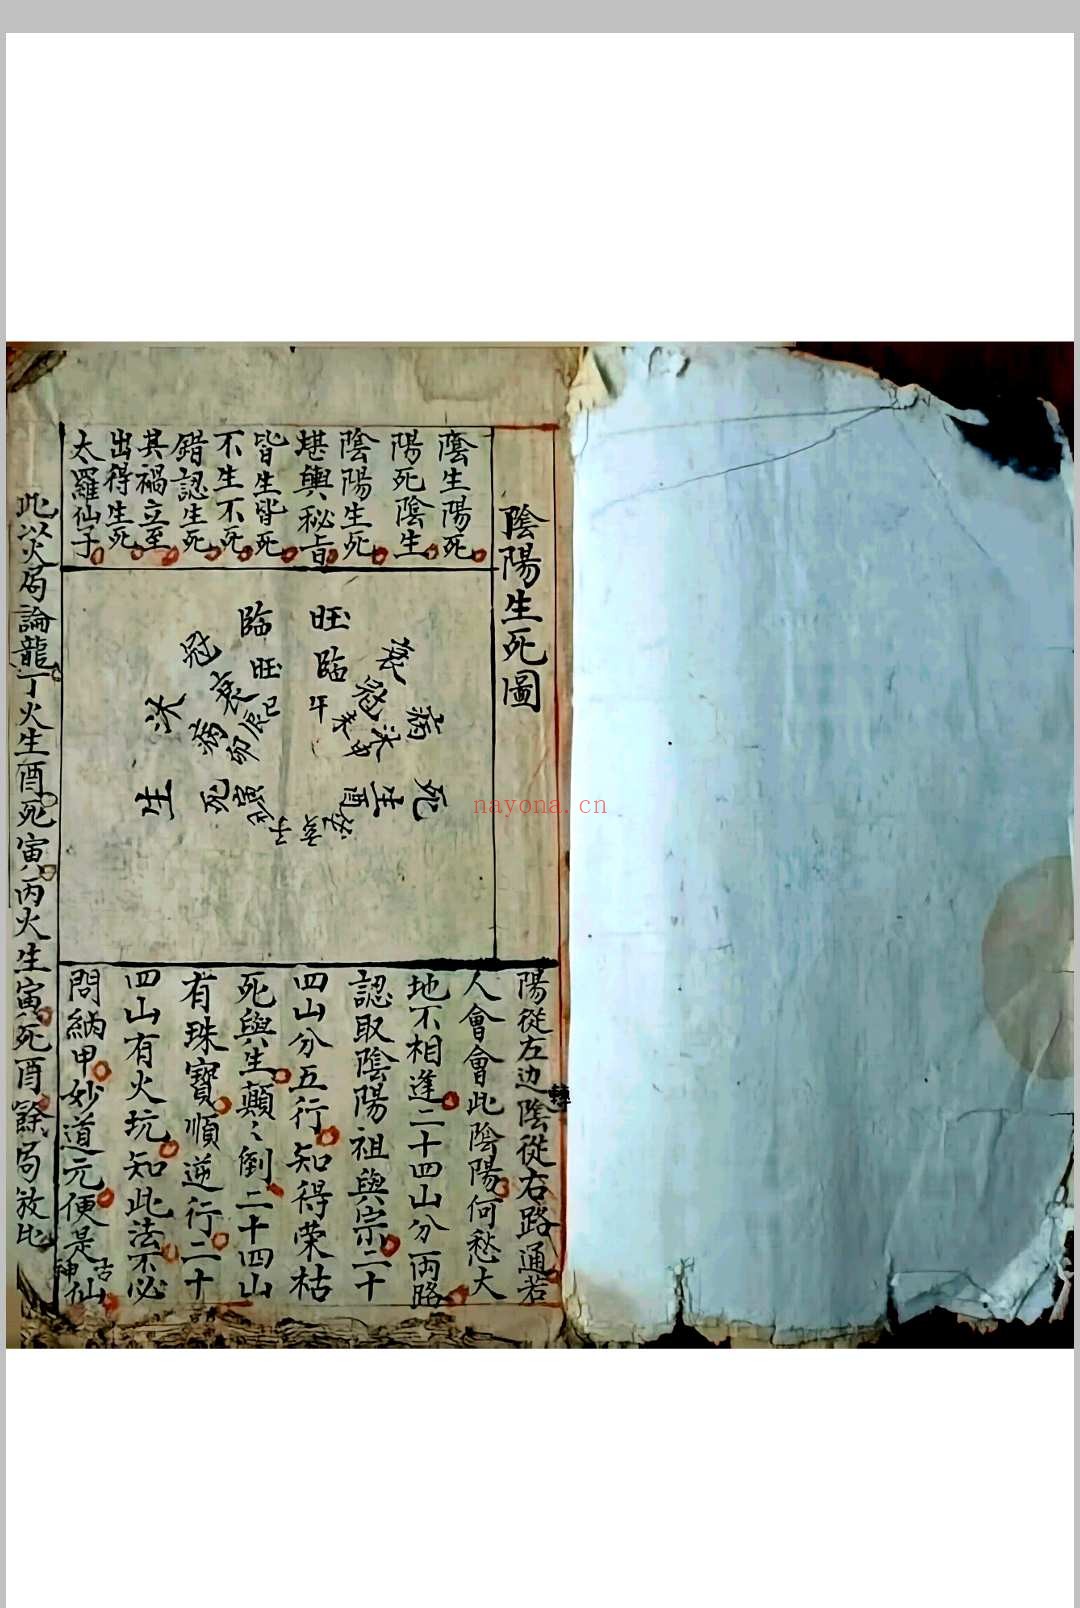 陰陽生死圖
陰生陽死
陽死陰生
陰陽生死
堪輿秘旨
皆生皆死
不生不死
錯認生死
其禍立至
出得生死
太羅仙子
旺
臨
冠
沐
生
衰
病
死
臨
旺
衰
病
死
冠
沐
生
午
未
申
酉
戌
亥
子
丑
寅
卯
辰
巳
陽從左边陰從右路通若
轉
人會會此陰陽何愁大
地不相逢二十四山分両路
認取陰陽祖與宗二十
四山分五行知得荣枯
死與生顛〻倒二十四山
有珠寶順逆行二十
四山有火坑知此法不必
問納甲妙道元便是仙
古
神
此以火局論龍丁火生酉死寅丙火生寅死酉餘局放比
nayona.cn